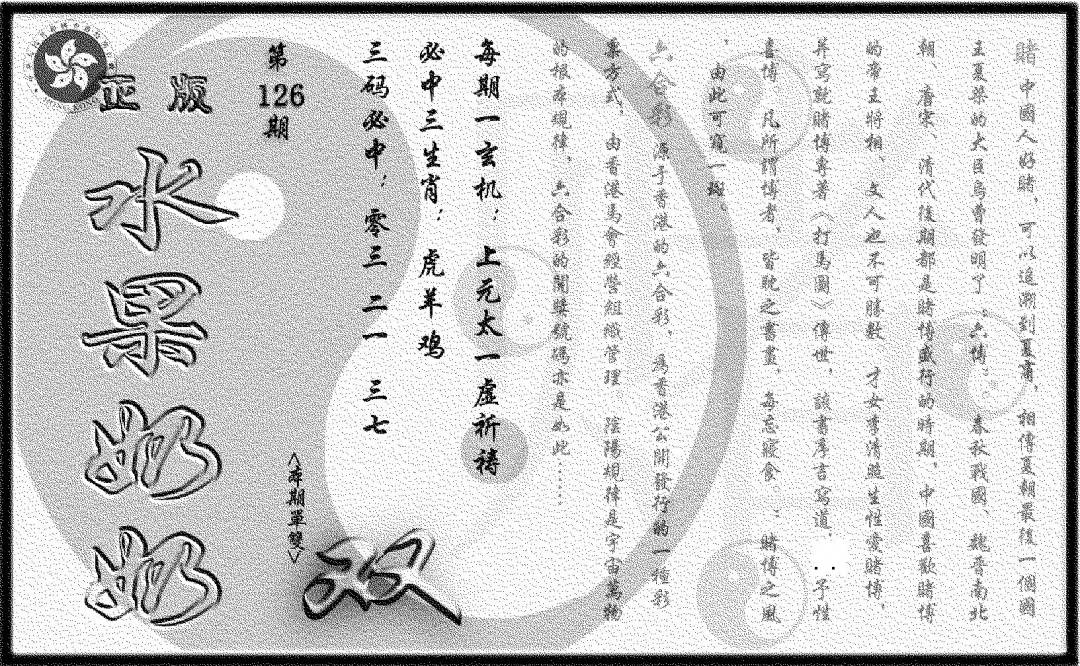 賭 中國人好賭，可以追溯到夏商，相傳夏朝最後一個國
王夏桀的大臣烏曹發明了“六博”。春秋戰國、魏晉南北
朝、唐宋、清代後期都是賭博盛行的時期，中國喜歡賭博
的帝王將相 文人也不可勝數 才女李清照生性愛賭博，
并寫就賭博專著《打馬圖》傳世，該書序言寫道：予性
喜博 凡所謂博者，皆耽之晝晝，每忘寢食 ；賭博之風
，由此可窺一斑。
六合彩 源于香港的六合彩，爲香港公開發行的一種彩
票方式，由香港馬會經營組織管理。陰陽規律是宇宙萬物
的根本規律，六合彩的開獎號碼亦是如此……
每期一玄机：上元太一虚祈祷
必中三生肖：虎羊鸡
三码必中：零三 二一 三七
第
126
期
<本期單雙>
双
正版
水果奶奶